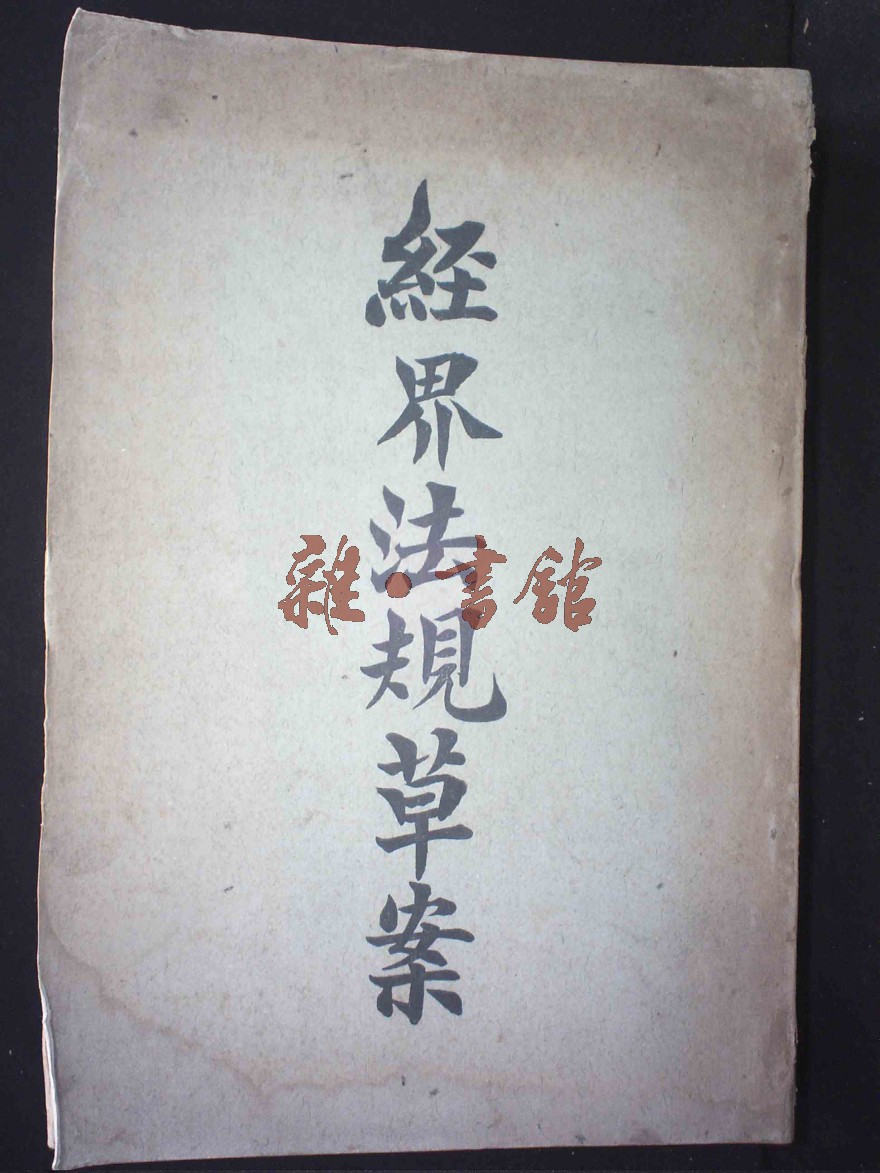 經界法規草案
雜·書館